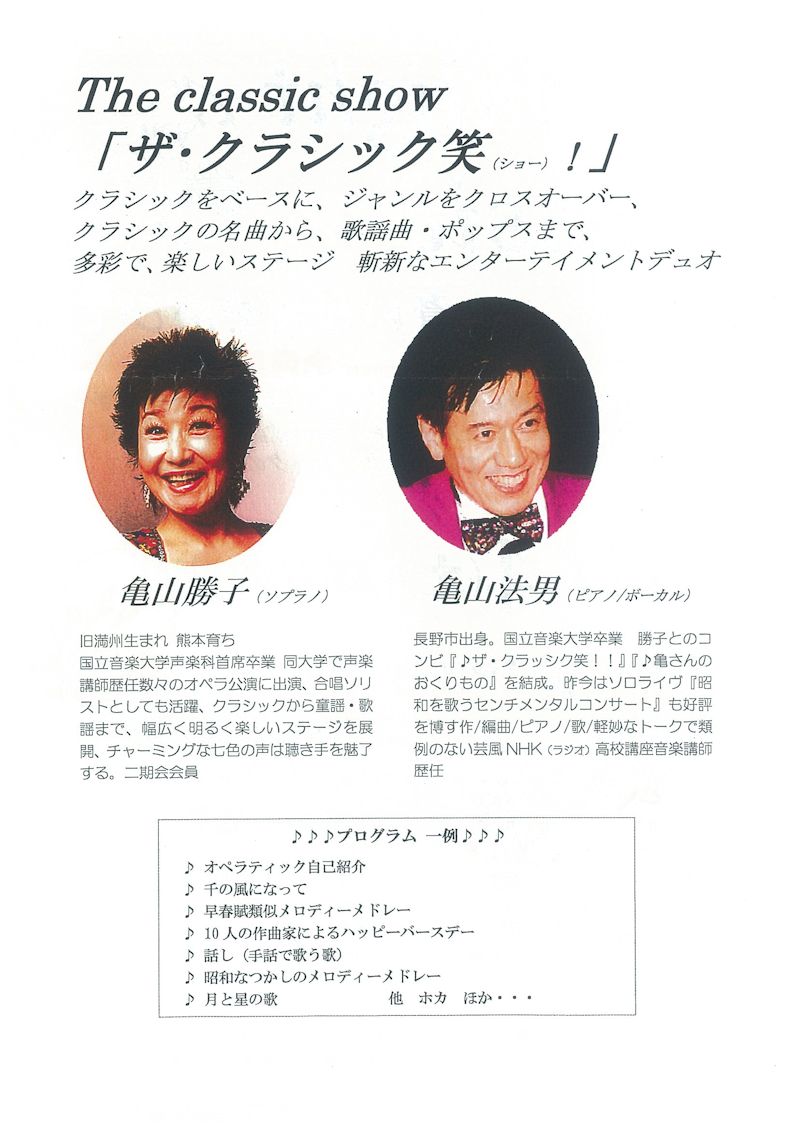 The classic show
「ザ・クラシック笑（ショー）！」
クラシックをベースに、ジャンルをクロスオーバー、
クラシックの名曲から、歌謡曲・ポップスまで、
多彩で、楽しいステージ　斬新なエンターテイメントデュオ
亀山勝子（ソプラノ）
旧満州生まれ 熊本育ち
国立音楽大学声楽科首席卒業 同大学で声楽
講師歴任数々のオペラ公演に出演、合唱ソリ
ストとしても活躍、クラシックから童謡・歌
謡まで、幅広く明るく楽しいステージを展
開、チャーミングな七色の声は聴き手を魅了
する。二期会会員
亀山法男（ピアノ/ボーカル）
長野市出身。国立音楽大学卒業　勝子とのコ
ンビ『♪ザ・クラッシク笑！！』『♪亀さんの
おくりもの』を結成。昨今はソロライヴ『昭
和を歌うセンチメンタルコンサート』も好評
を博す作/編曲/ピアノ/歌/軽妙なトークで類
例のない芸風 NHK（ラジオ）高校講座音楽講師
歴任
♪♪♪プログラム 一例♪♪♪
♪ オペラティック自己紹介
♪ 千の風になって
♪ 早春賦類似メロディーメドレー
♪ 10人の作曲家によるハッピーバースデー
♪ 話し（手話で歌う歌）
♪ 昭和なつかしのメロディーメドレー
♪ 月と星の歌　　　　　　他　ホカ　ほか・・・